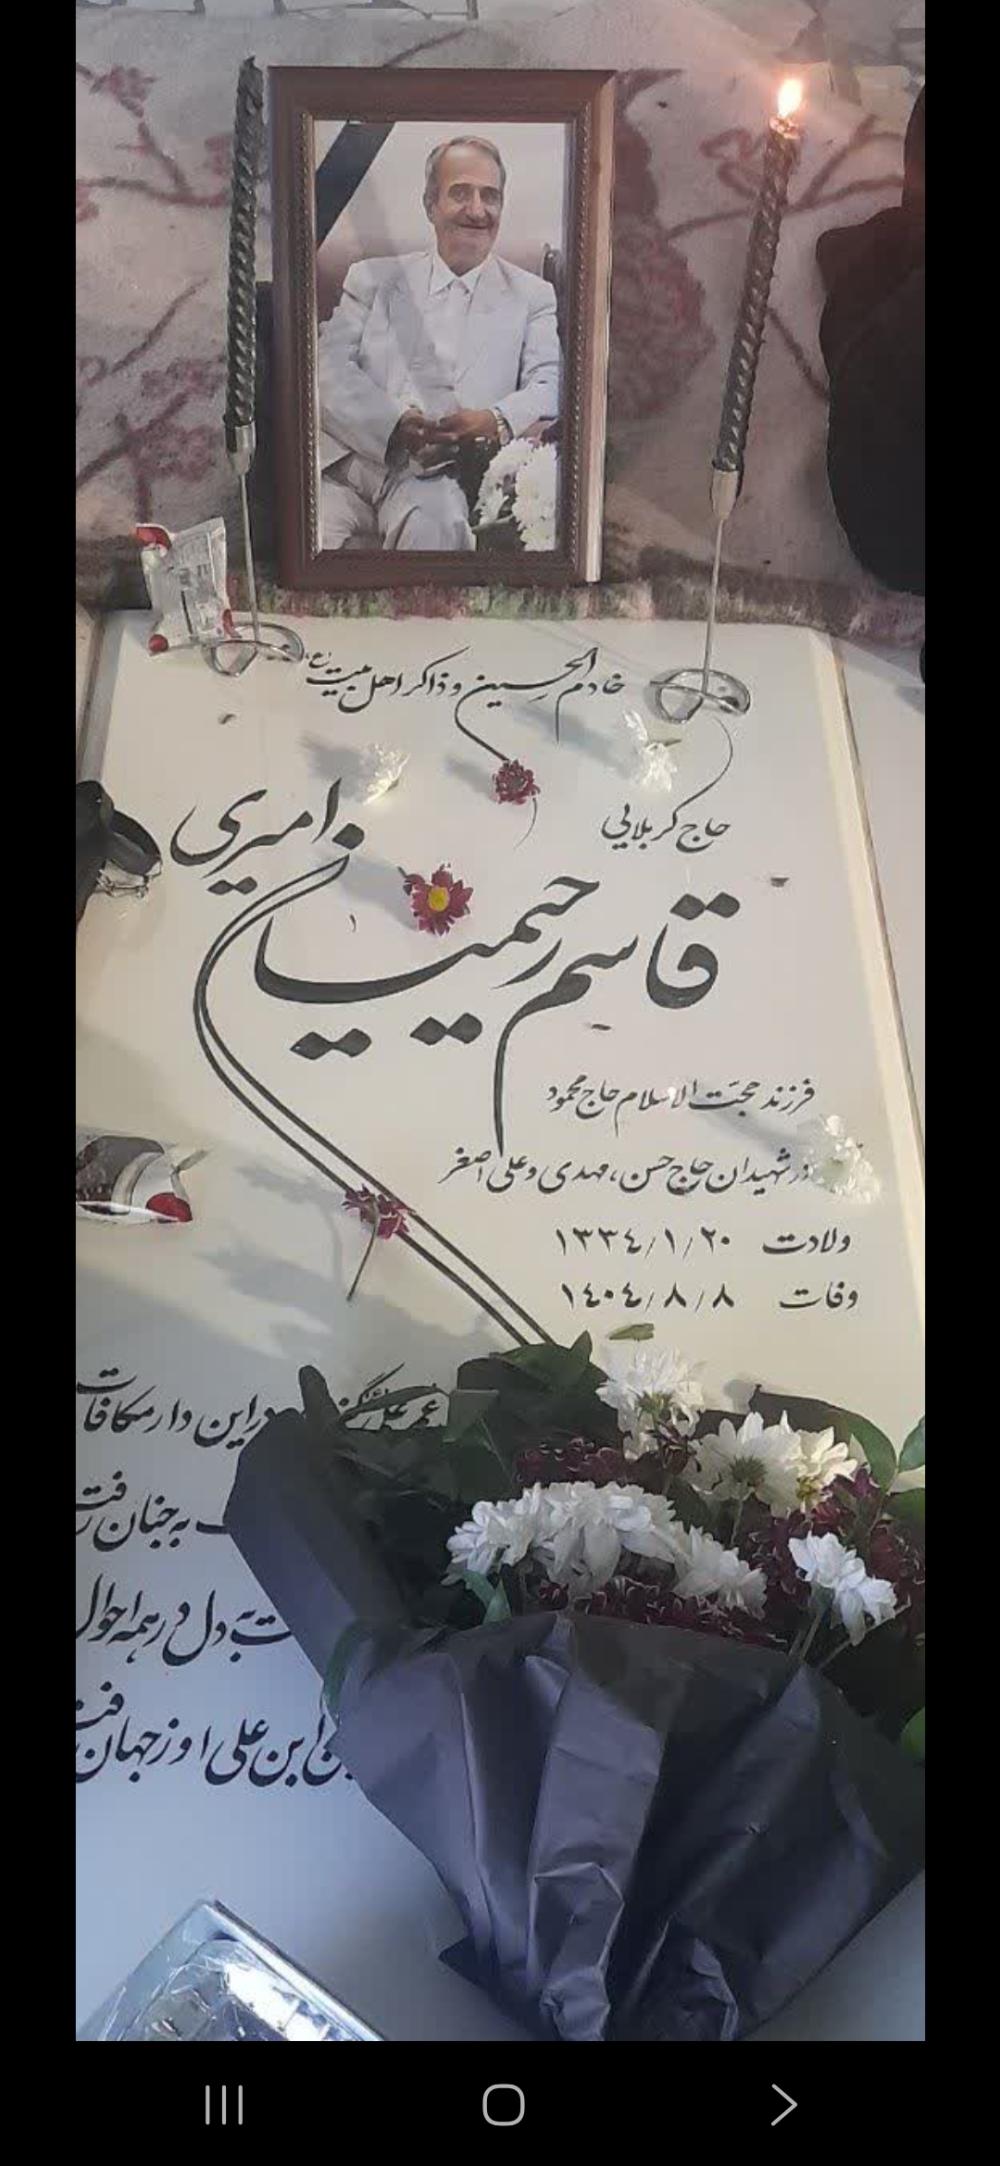 خادم الحسین و ذاکر اهل بیت (ع)
حاج کربلایی
قاسم رحیمیان امیری
فرزند حجت الاسلام حاج محمود
شهیدان حاج حسن، مهدی و علی اصغر
ولادت ۱۳۳٤/۱/۲۰
وفات ۱٤۰٤/۸/۸
در این دار مکافات
به جنان رفت
به دل در همه احوال
ابن علی او ز جهان رفت